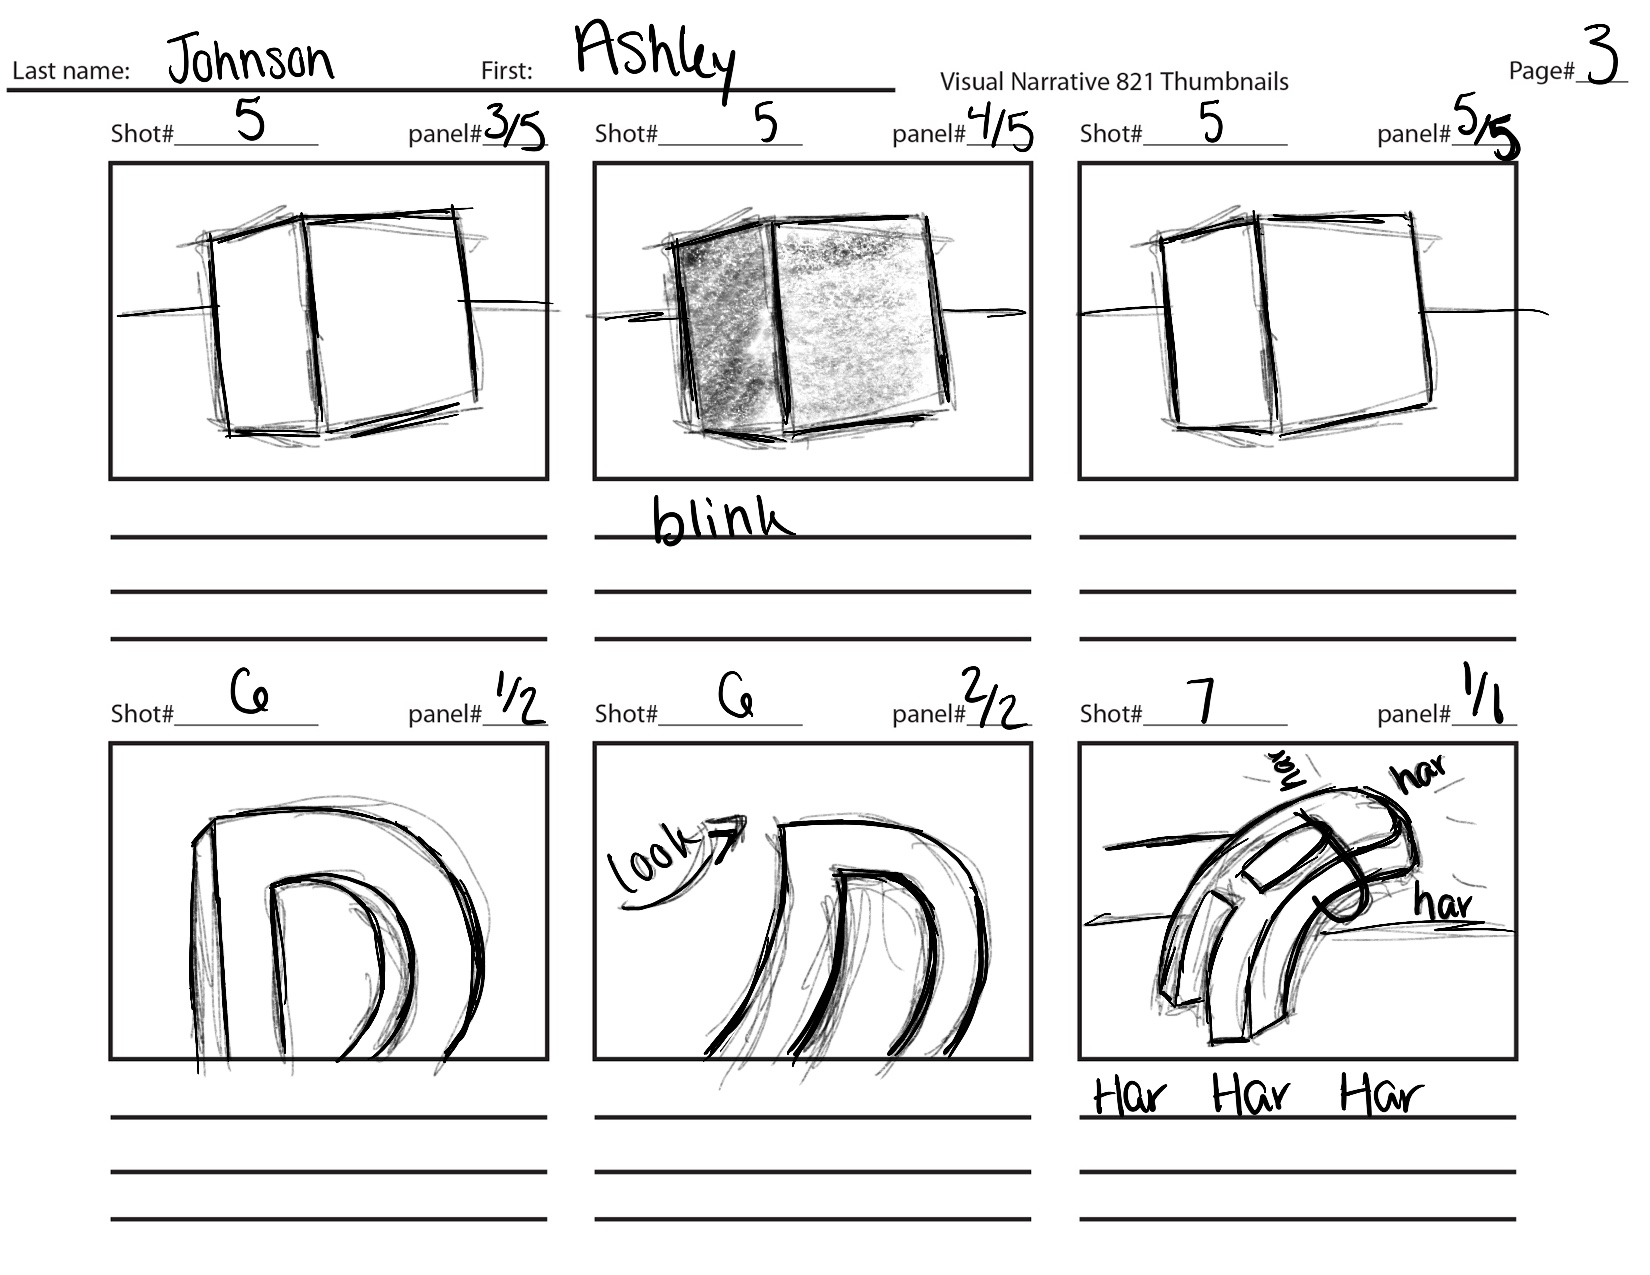 Last name: Johnson First: Ashley Visual Narrative 821 Thumbnails Page# 3
Shot# 5 panel# 3/5 Shot# 5 panel# 4/5 Shot# 5 panel# 5/5
blink
Shot# 6 panel# 1/2 Shot# 6 panel# 2/2 Shot# 7 panel# 1/1
look
har
har
har
Har Har Har